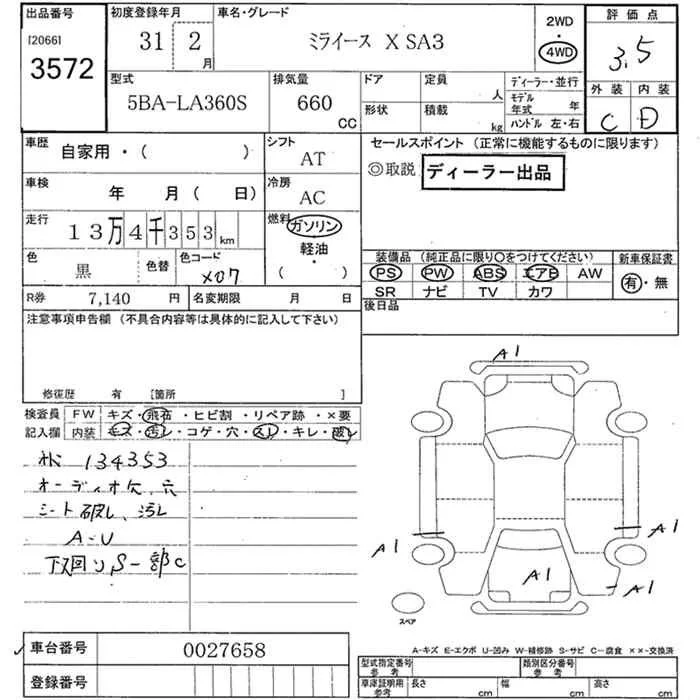 出品番号
[2066]
3572
初度登録年月
31 2 月
車名・グレード
ミライース X SA3
2WD
・
4WD
評価点
3.5
外装 内装
C D
型式
5BA-LA360S
排気量
660 CC
ドア
形状
定員 人
積載 kg
ディーラー・並行
モデル年式 年
ハンドル 左・右
車歴
自家用・( )
シフト
AT
車検 年 月( 日)
冷房
AC
走行
13万4千353km
燃料
ガソリン
軽油・
( )
色
黒
色替
色コード
X07
R券 7,140 円
名変期限 月 日
セールスポイント (正常に機能するものに限ります)
◎取説 ディーラー出品
装備品 (純正品に限り〇をつけてください)
PS PW ABS エアB AW
SR ナビ TV カワ
新車保証書
有・無
後日品
注意事項申告欄 (不具合内容等は具体的に記入して下さい)
修復歴 有 [箇所 ]
検査員
記入欄
FW キズ・飛石・ヒビ割・リペア跡・×要
内装 キズ・汚レ・コゲ・穴・スレ・キレ・破レ
134353
オーディオ欠、穴
シート破レ、汚レ
A-U
下回りS一部C
A1
A1
A1
A1
A1
スペア
A-キズ E-エクボ U-凹み W-補修跡 S-サビ C-腐食 ××-交換済
車台番号 0027658
登録番号
型式指定番号 参考
類別区分番号 参考
車庫証明用 参考
長さ cm 幅 cm 高さ cm